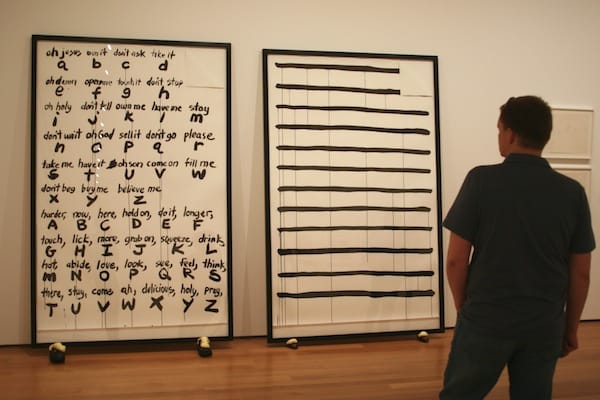 oh jesus own it don't ask take it
a b c d
oh damn open me touch it don't stop
e f g h
oh holy don't tell own me have me stay
i j k l m
don't wait oh God sell it don't go please
n o p q r
take me have it oh son come on fill me
s t u v w
don't beg buy me believe me
x y z
harder, now, here, hold on, do it, longer,
A B C D E F
touch, lick, more, grab on, squeeze, drink,
G H I J K L
hot, abide, love, look, see, feel, think,
M N O P Q R S
there, stay, come ah, delicious, holy, pray,
T U V W X Y Z